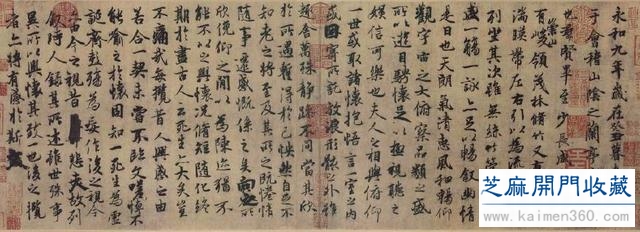 永和九年歲在癸丑暮
于會稽山陰之蘭亭
也群賢畢至少長咸
有崇山峻領茂林脩竹又有
湍暎帶左右引以為流
列坐其次雖無絲竹
盛一觴一詠亦足以暢敘幽情
是日也天朗氣清惠風和暢仰
觀宇宙之大俯察品類之盛
所以遊目騁懷足以極視聽之
娛信可樂也夫人之相與俯仰
一世或取諸懷抱悟言一室之內
或因寄所託放浪形骸之外雖
趣舍萬殊靜躁不同當其欣
於所遇蹔得於己怏然自足不
知老之將至及其所之既惓情
隨事遷感慨係之矣向之所
欣俛仰之閒以為陳迹猶不
能不以之興懷況脩短隨化終
期於盡古人云死生亦大矣豈
不痛哉每攬昔人興感之由
若合一契未嘗不臨文嗟悼不
能喻之於懷固知一死生為虛
誕齊彭殤為妄作後之視今
亦由今之視昔悲夫故列
敘時人錄其所述雖世殊事
異所以興懷其致一也後之攬
者亦將有感於斯
芝麻開門收藏
www.kaimen360.com